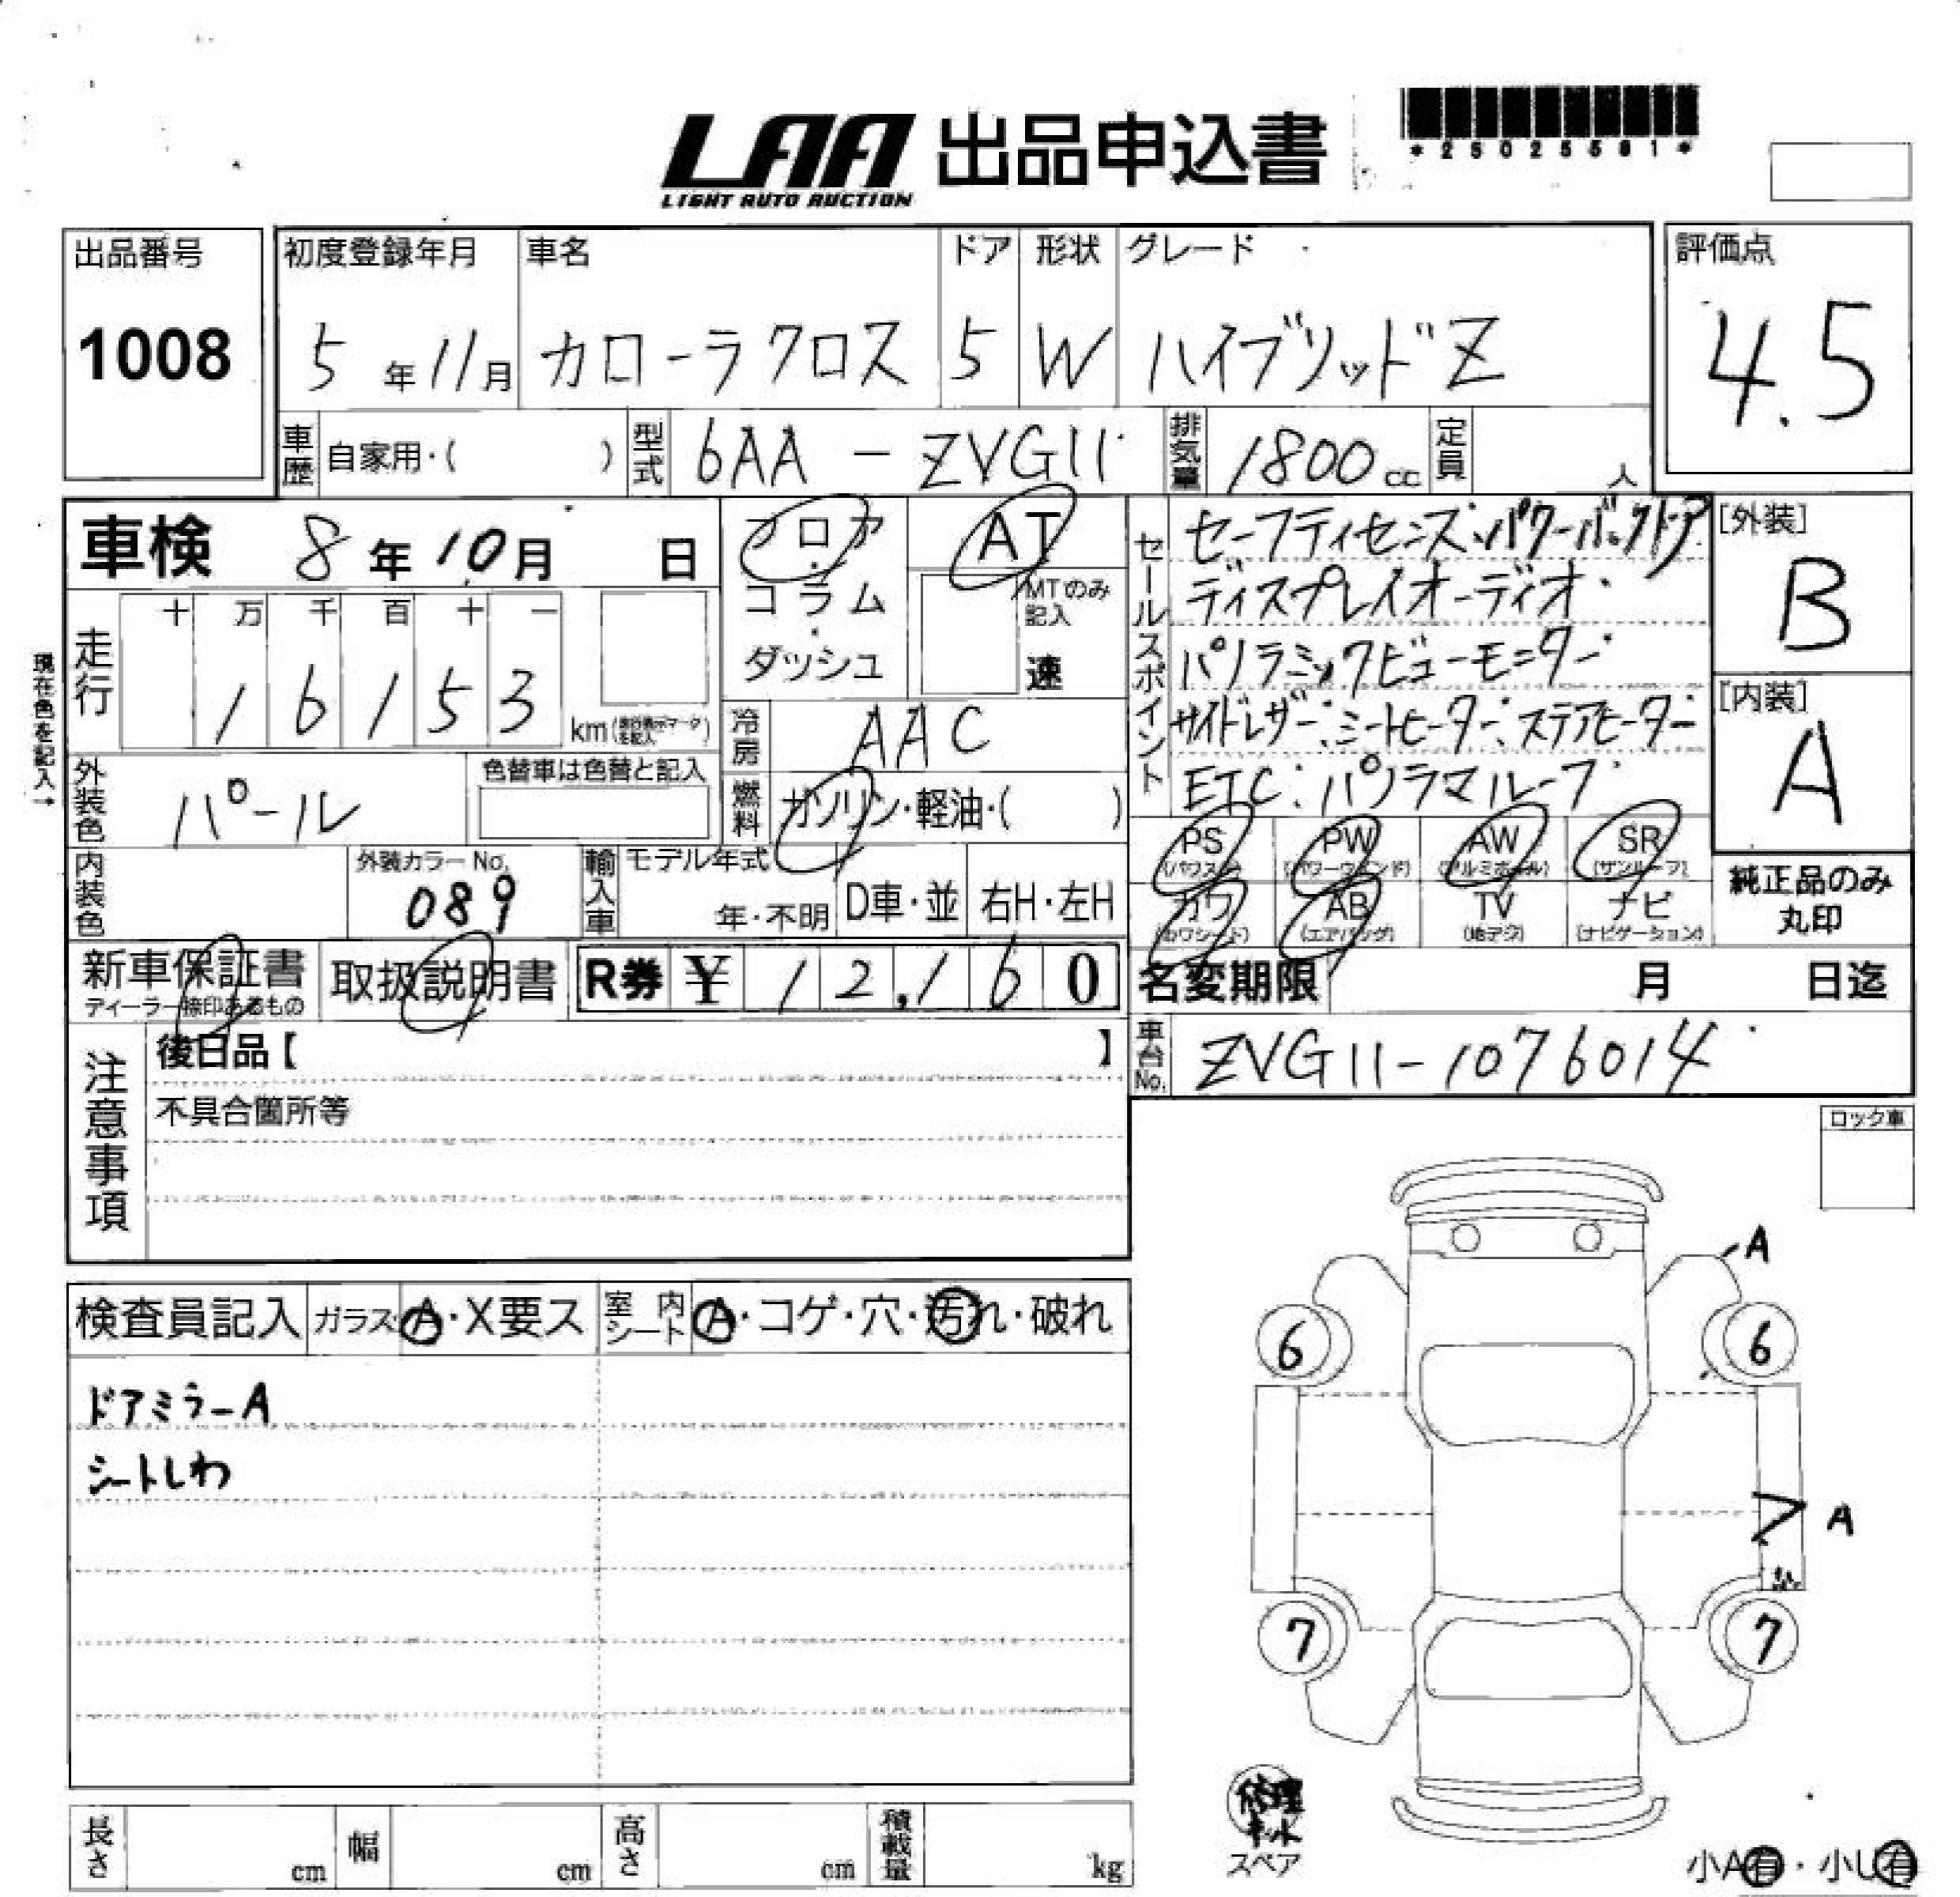 LAA 出品申込書
LIGHT AUTO AUCTION
*25025591*
出品番号
1008
初度登録年月 車名 ドア 形状 グレード
5年11月 カローラクロス 5 W ハイブリッドZ
評価点
4.5
車歴 自家用・( ) 型式 6AA-ZVG11 排気量 1800cc 定員 人
車検 8年10月 日
フロア
コラム
ダッシュ
AT
MTのみ記入
速
走行 十 万 千 百 十 一
16153 km
現在色を記入→
冷房 AAC
燃料 ガソリン・軽油・( )
外装色 パール 色替車は色替と記入
内装色 外装カラーNo. 089
輸入車 モデル年式 年・不明 D車・並 右H・左H
セールスポイント
セーフティセンス・パワーバックドア
ディスプレイオーディオ・
パノラミックビューモニター・
サイドレザー・シートヒーター・ステアヒーター
ETC・パノラマルーフ・
[外装]
B
[内装]
A
PS (パワステ) PW (パワーウインド) AW (アルミホイール) SR (サンルーフ)
カワ (カワシート) AB (エアバッグ) TV (地デジ) ナビ (ナビゲーション)
純正品のみ
丸印
新車保証書
ディーラー捺印あるもの
取扱説明書
R券 ¥12,160
名変期限 月 日迄
車台No. ZVG11-1076014
注意事項
後日品【 】
不具合箇所等
ロック車
検査員記入 ガラス A・X要ス 室内シート A・コゲ・穴・汚れ・破れ
ドアミラーA
シートしわ
A
6 6
A
7 7
修理キット
スペア
小A有・小U有
長さ cm 幅 cm 高さ cm 積載量 kg